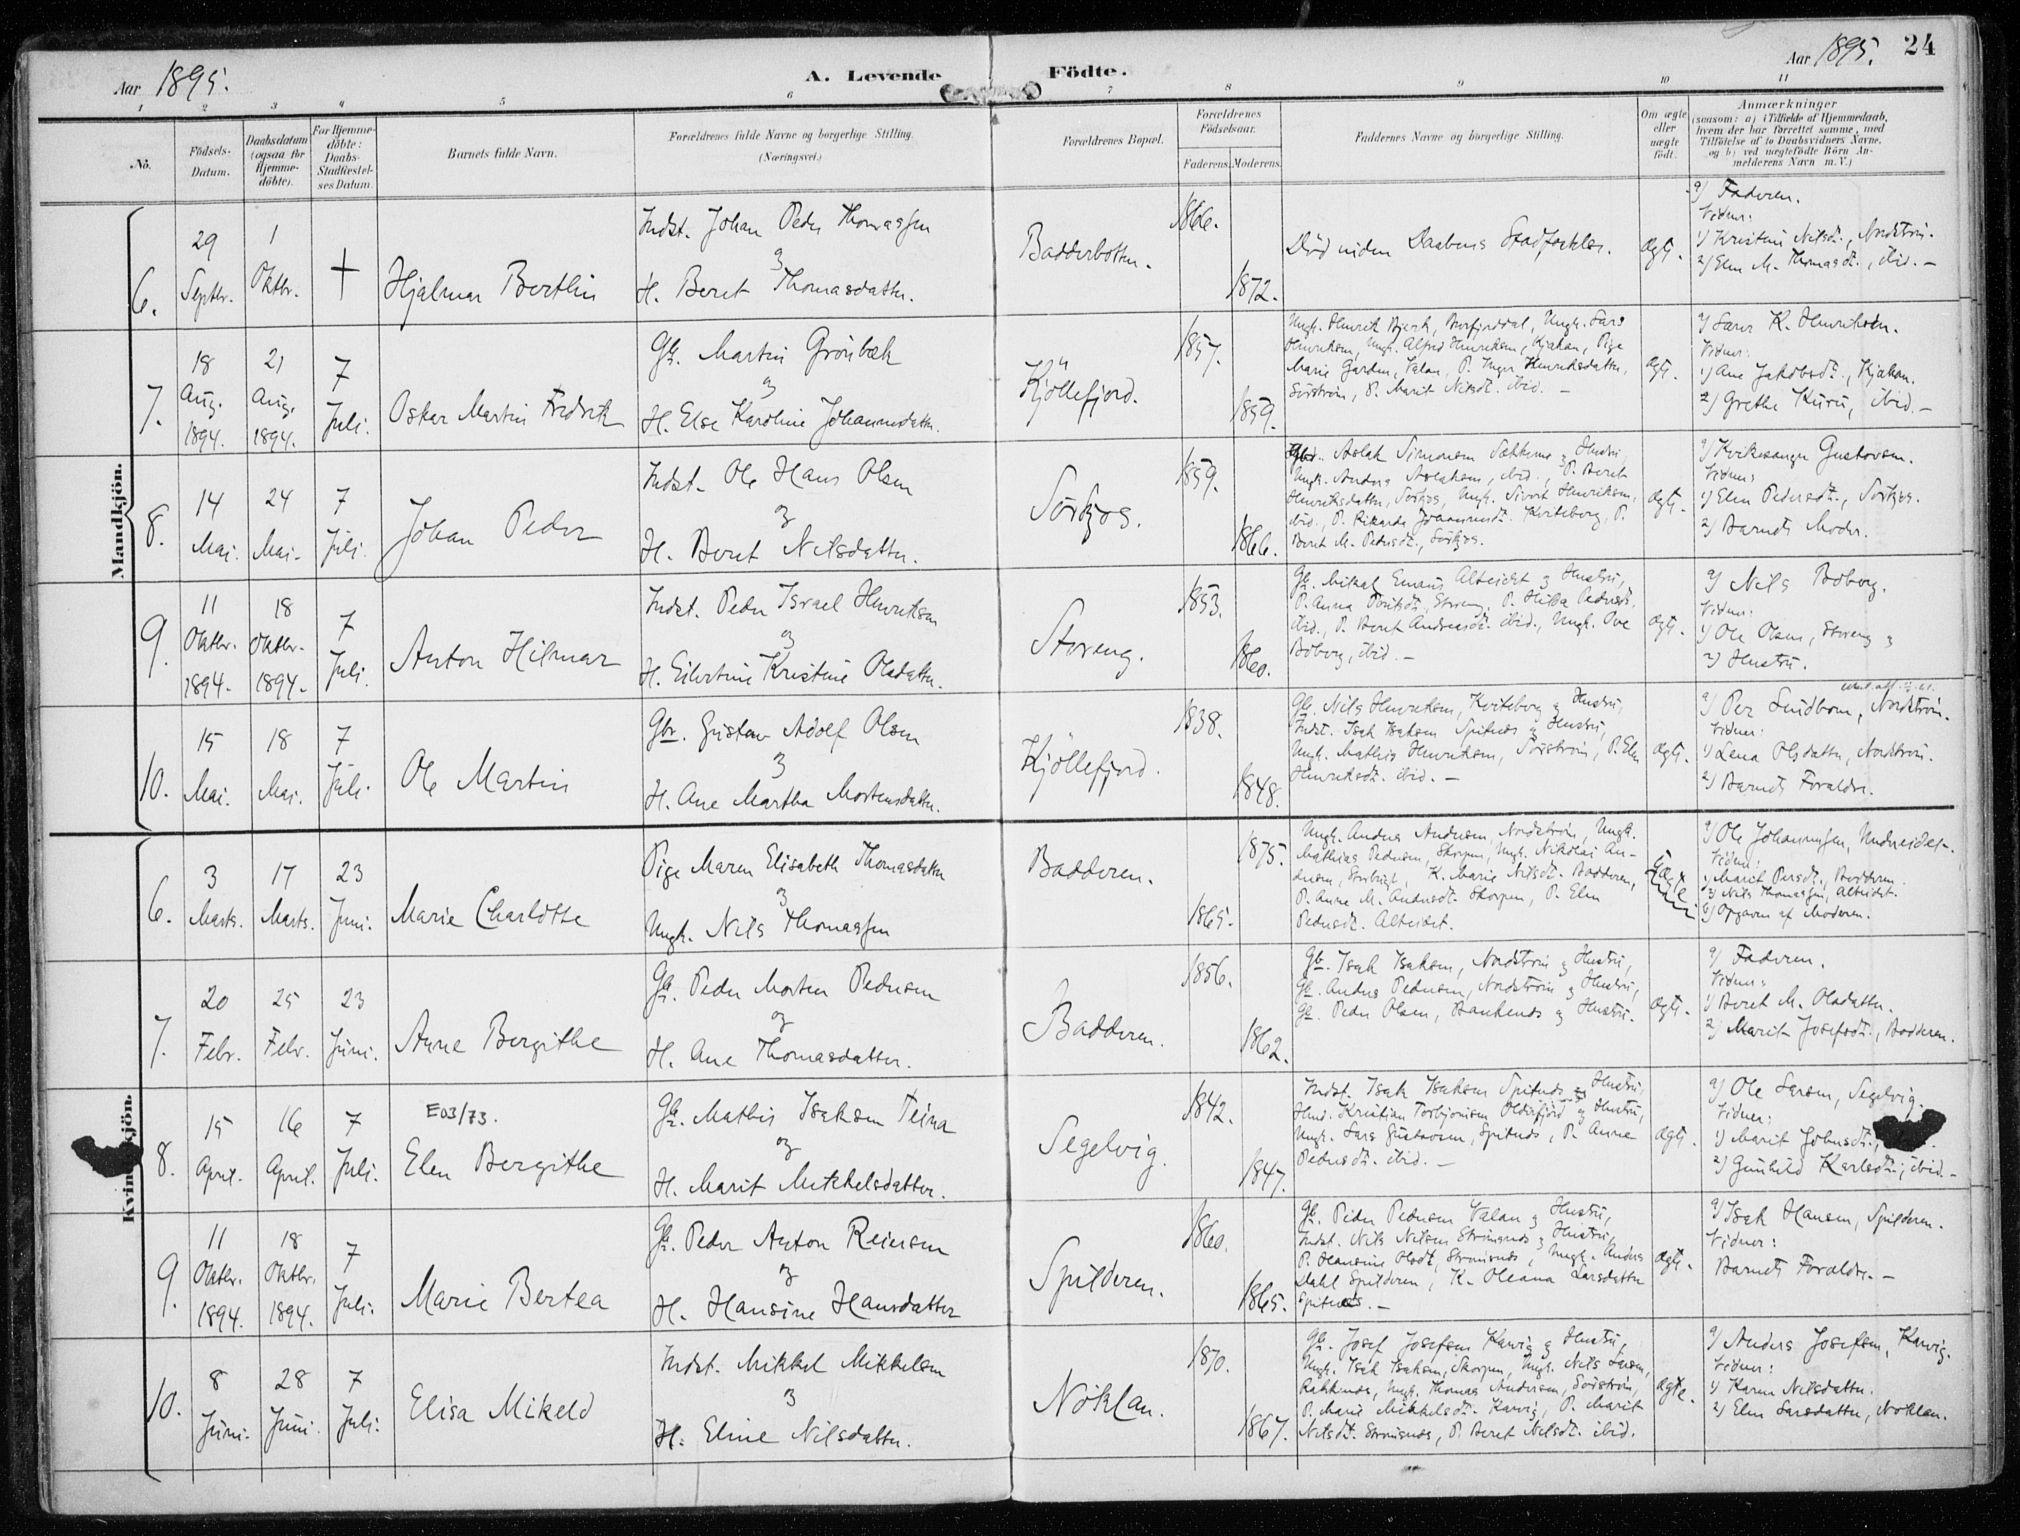 Aar 1895.
A. Levende Födte.
Aar 1895.
24
1 2 3 4 5 6 7 8 9 10 11
No.
Födsels-Datum.
Daabsdatum (ogsaa for Hjemme-döbte).
For Hjemme-döbte: Daabs-Stadfæstel-ses Datum.
Barnets fulde Navn.
Forældrenes fulde Navne og borgerlige Stilling. (Næringsvei.)
Forældrenes Bopæl.
Forældrenes Födselsaar.
Faderens. Moderens.
Faddernes Navne og borgerlige Stilling.
Om ægte eller uægte födt.
Anmærkninger
(saasom: a) i Tilfælde af Hjemmedaab, hvem der har forrettet samme, med Tilföielse af to Daabsvidners Navne, og b) ved uægtefödte Börn An-melderens Navn m. V.)
Mandkjön.
6.
29 Septbr.
1 Oktbr.
+
Hjalmar Bertlin
Indst. Johan Peder Thomassen
og
H. Beret Thomasdatter.
Badderbotten.
1866.
1872.
Död inden Daabens Stadfæstelse.
Ægt.
a) Faderen.
Vidner:
1) Kristine Nilsdt., Nordström.
2) Elen M. Thomasdt., ibid. -
7.
18 Aug. 1894.
21 Aug. 1894.
7 Juli.
Oskar Martin Fredrik
Gbr. Martin Grönbæk
og
H. Else Karoline Johannesdatter.
Kjöllefjord.
1857.
1859.
Ungk. Henrik Bjerk, Burfjorddal, Ungk. Lars
Henriksen, Ungk. Alfred Henriksen, Kjækan, Pige
Marie Garden, Valan, P. Inger Henriksdatter,
Sörström, P. Marit Nilsdt. ibid. -
Ægt.
a) Lars K. Henriksen.
Vidner:
1) Ane Jakobsdt., Kjækan.
2) Grethe Kuru, ibid. -
8.
14 Mai.
24 Mai.
7 Juli.
Johan Peder
Indst. Ole Hans Olsen
og
H. Beret Nilsdatter.
Sörkjos.
1859.
1866.
Aslak Simonsen Sækkemo og Hustru,
Ungk. Anders Aslaksen, ibid., P. Beret
Henriksdatter, Sörkjos, Ungk. Sivert Henriksen,
ibid., P. Rikarda Johannesdt. Kviteberg, P.
Beret M. Pedersdt., Sörkjos.
Ægt.
a) Kvæksanger Gustavsen.
Vidner:
1) Elen Pedersdt., Sörkjos.
2) Barnets Moder.
9.
11 Oktbr. 1894.
18 Oktbr. 1894.
7 Juli.
Anton Hilmar
Indst. Peder Israel Henriksen
og
H. Eilertine Kristine Olsdatter.
Storeng.
1853.
1860.
Gbr. Mikal Emaus Alteidet og Hustru,
P. Anna Storeng, P. Hilda Pedersdt.
ibid., P. Beret Andersdt. ibid., Ungk. Ove
Boberg, ibid. -
Ægt.
a) Nils Boberg.
Vidner:
1) Ole Olsen, Storeng og
2) Hustru.
10.
15 Mai.
18 Mai.
7 Juli.
Ole Martin
Gbr. Gustav Adolf Olsen
og
H. Ane Martha Mortensdatter.
Kjöllefjord.
1838.
1848.
Gbr. Nils Henriksen, Kviteberg og Hustru,
Indst. Isak Isaksen Spitnæs og Hustru,
Ungk. Mathis Henriksen, Sörström, P. Elen
Henriksdt. ibid. -
Ægt.
a) Per Lindbom, Nordström.
Vidner:
1) Lena Olsdatter, Nordström.
2) Barnets Forældre.
Kvindekjön.
6.
3 Marts.
17 Marts.
23 Juni.
Marie Charlotte
Pige Maren Elisabeth Thomasdatter
og
Ungk. Nils Thomassen
Badderen.
1875.
1865.
Ungk. Anders Andersen, Nordström, Ungk.
Mathias Pedersen, Skorpen, Ungk. Nikolai An-
dersen, K. Marie Nilsdt. Badderen,
P. Anne M. Andersdt. Skorpen, P. Elen
Pedersdt. Alteidet.
Uægte
a) Ole Johannesen, Undereidet.
Vidner:
1) Marit Persdt., Badderen.
2) Nils Thomassen, Alteidet.
b) Opgaven af Moderen.
7.
20 Febr.
25 Febr.
23 Juni.
Anne Bergithe
Gbr. Peder Morten Pedersen
og
H. Ane Thomasdatter.
Badderen.
1856.
1862.
Gbr. Isak Isaksen, Nordström og Hustru,
Gbr. Anders Pedersen, Nordström og Hustru,
Gbr. Peder Olsen, Baukenes og Hustru.
Ægt.
a) Faderen.
Vidner:
1) Beret M. Olsdatter.
2) Marit Josefsdt., Badderen.
8.
15 April.
16 April.
7 Juli.
E03/73.
Elen Bergithe
Gbr. Mathis Isaksen Teina
og
H. Marit Mikkelsdatter.
Segelvig.
1842.
1847.
Indst. Isak Isaksen Spitnæs og Hustru,
Kristian Torbjörnsen Oldefjord og Hustru,
Ungk. Lars Gustavsen, Spitnæs, P. Anne
Pedersdt. ibid. -
Ægt.
a) Ole Larsen, Segelvig.
Vidner:
1) Marit Johnsdt.,
2) Gunhild Karlsdt., ibid. -
9.
11 Oktbr. 1894.
18 Oktbr. 1894.
7 Juli.
Marie Bertea
Gbr. Peder Anton Reiersen
og
H. Hansine Hansdatter
Spilderen.
1860.
1865.
Gbr. Peder Pedersen Valan og Hustru,
Indst. Nils Nilsen Strömsnæs og Hustru,
P. Hansine Olsdt. Strömsnæs, Ungk. Anders
Dahl Spilderen, K. Oleana Larsdatter
Spitnæs. -
Ægt.
a) Isak Hansen, Spilderen.
Vidner:
Barnets Forældre. -
10.
8 Juni.
28 Juni.
7 Juli.
Elisa Mikeld
Indst. Mikkel Mikkelsen
og
H. Eline Nilsdatter.
Nöklan.
1870.
1867.
Gbr. Josef Josefsen Karvig og Hustru,
Ungk. Isak Isaksen, Skorpen, Ungk. Nils Larsen,
Rakkenæs, Ungk. Thomas Andersen, Sörström,
P. Marie Mikkelsdt. Karvig, P. Marit
Nilsdt. Strömsnæs, P. Beret Nilsdt. ibid.
Ægte.
a) Anders Josefsen, Karvig.
Vidner:
1) Karen Nilsdatter.
2) Elen Larsdatter, Nöklan.